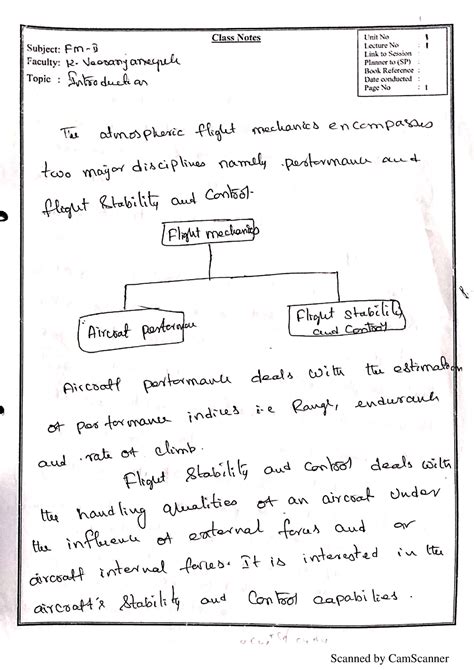 Class Notes
Subject: Fm-II
Faculty: K. Veeranjaneyulu
Topic : Introduction
Unit No 1
Lecture No : 1
Link to Session :
Planner to (SP) :
Book Reference :
Date conducted :
Page No : 1
The atmospheric flight mechanics encompasses
two major disciplines namely performance and
flight Stability and Control.
Flight mechanics
Aircraft performance
Flight Stability
and Control
Aircraft performance deals with the estimation
of performance indices i.e Range, endurance
and rate of climb.
Flight Stability and Control deals with
the handling qualities of an aircraft under
the influence of external forces and or
aircraft internal forces. It is interested in the
aircraft's Stability and Control capabilities.
Scanned by CamScanner